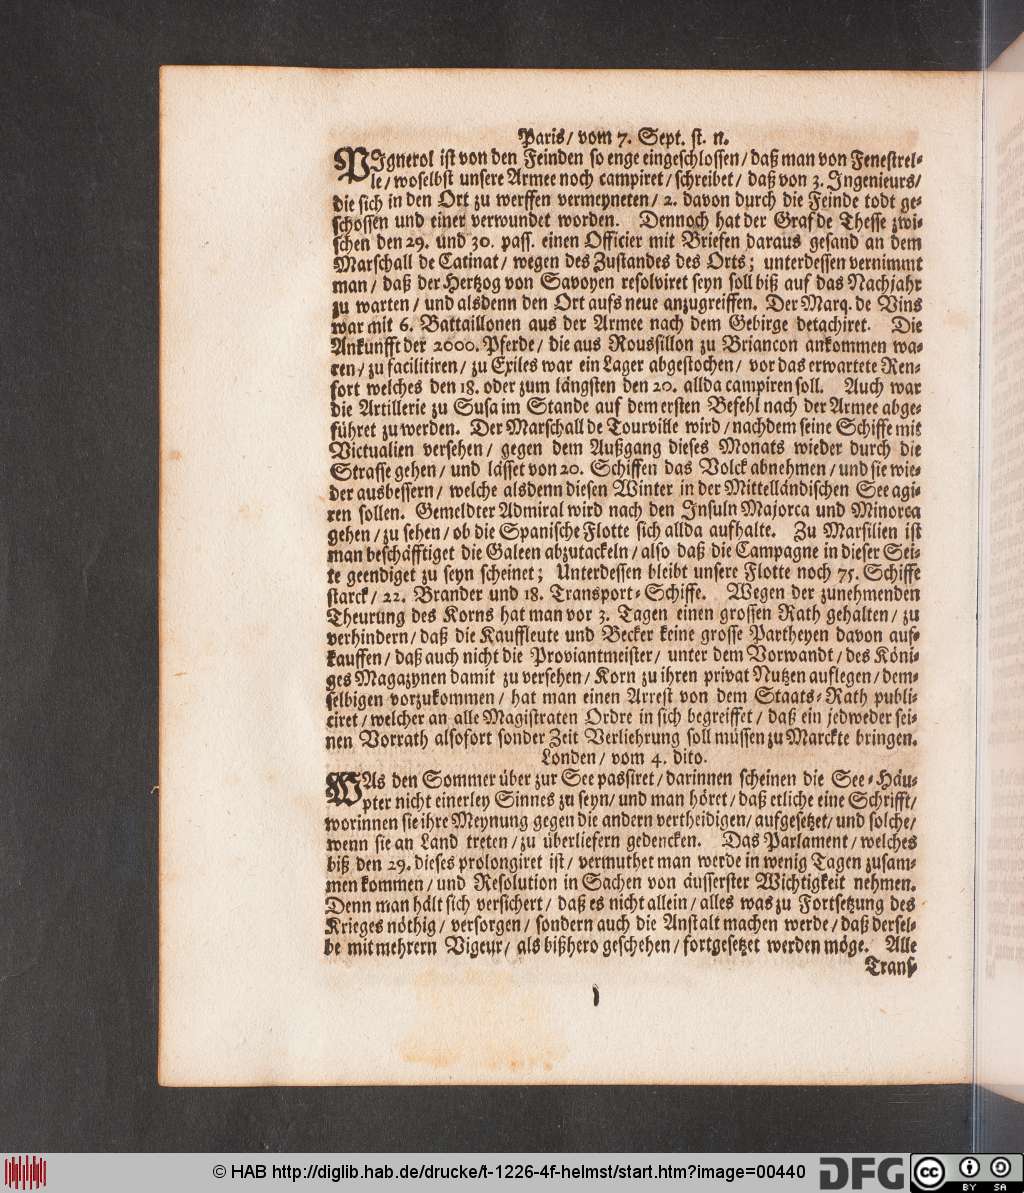 Paris/ vom 7. Sept. st. n.
PIgnerol ist von den Feinden so enge eingeschlossen/ daß man von Fenestrel-
le/ woselbst unsere Armee noch campiret/ schreibet/ daß von 3. Ingenieurs/
die sich in den Ort zu werffen vermeyneten/ 2. davon durch die Feinde todt ge-
schossen und einer verwundet worden. Dennoch hat der Graf de Thesse zwi-
schen den 29. und 30. pass. einen Officier mit Briefen daraus gesand an dem
Marschall de Catinat/ wegen des Zustandes des Orts; unterdessen vernimmt
man/ daß der Hertzog von Savoyen resolviret seyn soll biß auf das Nachjahr
zu warten/ und alsdenn den Ort aufs neue anzugreiffen. Der Marq. de Vins
war mit 6. Battaillonen aus der Armee nach dem Gebirge detachiret. Die
Ankunfft der 2000. Pferde/ die aus Roussillon zu Briancon ankommen wa-
ren/ zu facilitiren/ zu Exiles war ein Lager abgestochen/ vor das erwartete Ren-
fort welches den 18. oder zum längsten den 20. allda campiren soll. Auch war
die Artillerie zu Susa im Stande auf dem ersten Befehl nach der Armee abge-
führet zu werden. Der Marschall de Tourville wird/ nachdem seine Schiffe mit
Victualien versehen/ gegen dem Außgang dieses Monats wieder durch die
Strasse gehen/ und lässet von 20. Schiffen das Volck abnehmen/ und sie wie-
der ausbessern/ welche alsdenn diesen Winter in der Mittelländischen See agi-
ren sollen. Gemeldter Admiral wird nach den Insuln Majorca und Minorca
gehen/ zu sehen/ ob die Spanische Flotte sich allda aufhalte. Zu Marsilien ist
man beschäfftiget die Galeen abzutackeln/ also daß die Campagne in dieser Sei-
te geendiget zu seyn scheinet; Unterdessen bleibt unsere Flotte noch 75. Schiffe
starck/ 22. Brander und 18. Transport-Schiffe. Wegen der zunehmenden
Theurung des Korns hat man vor 3. Tagen einen grossen Rath gehalten/ zu
verhindern/ daß die Kauffleute und Becker keine grosse Partheyen davon auf-
kauffen/ daß auch nicht die Proviantmeister/ unter dem Vorwandt/ des Köni-
ges Magazynen damit zu versehen/ Korn zu ihren privat Nutzen auflegen/ dem-
selbigen vorzukommen/ hat man einen Arrest von dem Staats-Rath publi-
ciret/ welcher an alle Magistraten Ordre in sich begreiffet/ daß ein jedweder sei-
nen Vorrath alsofort sonder Zeit Verliehrung soll müssen zu Marckte bringen.
Londen/ vom 4. dito.
WAs den Sommer über zur See passiret/ darinnen scheinen die See-Häu-
pter nicht einerley Sinnes zu seyn/ und man höret/ daß etliche eine Schrifft/
worinnen sie ihre Meynung gegen die andern vertheidigen/ aufgesetzet/ und solche/
wenn sie an Land treten/ zu überliefern gedencken. Das Parlament/ welches
biß den 29. dieses prolongiret ist/ vermuthet man werde in wenig Tagen zusam-
men kommen/ und Resolution in Sachen von äusserster Wichtigkeit nehmen.
Denn man hält sich versichert/ daß es nicht allein/ alles was zu Fortsetzung des
Krieges nöthig/ versorgen/ sondern auch die Anstalt machen werde/ daß dersel-
be mit mehrern Vigeur/ als bißhero geschehen/ fortgesetzet werden möge. Alle
Trans-
© HAB http://diglib.hab.de/drucke/t-1226-4f-helmst/start.htm?image=00440
DFG
cc BY SA